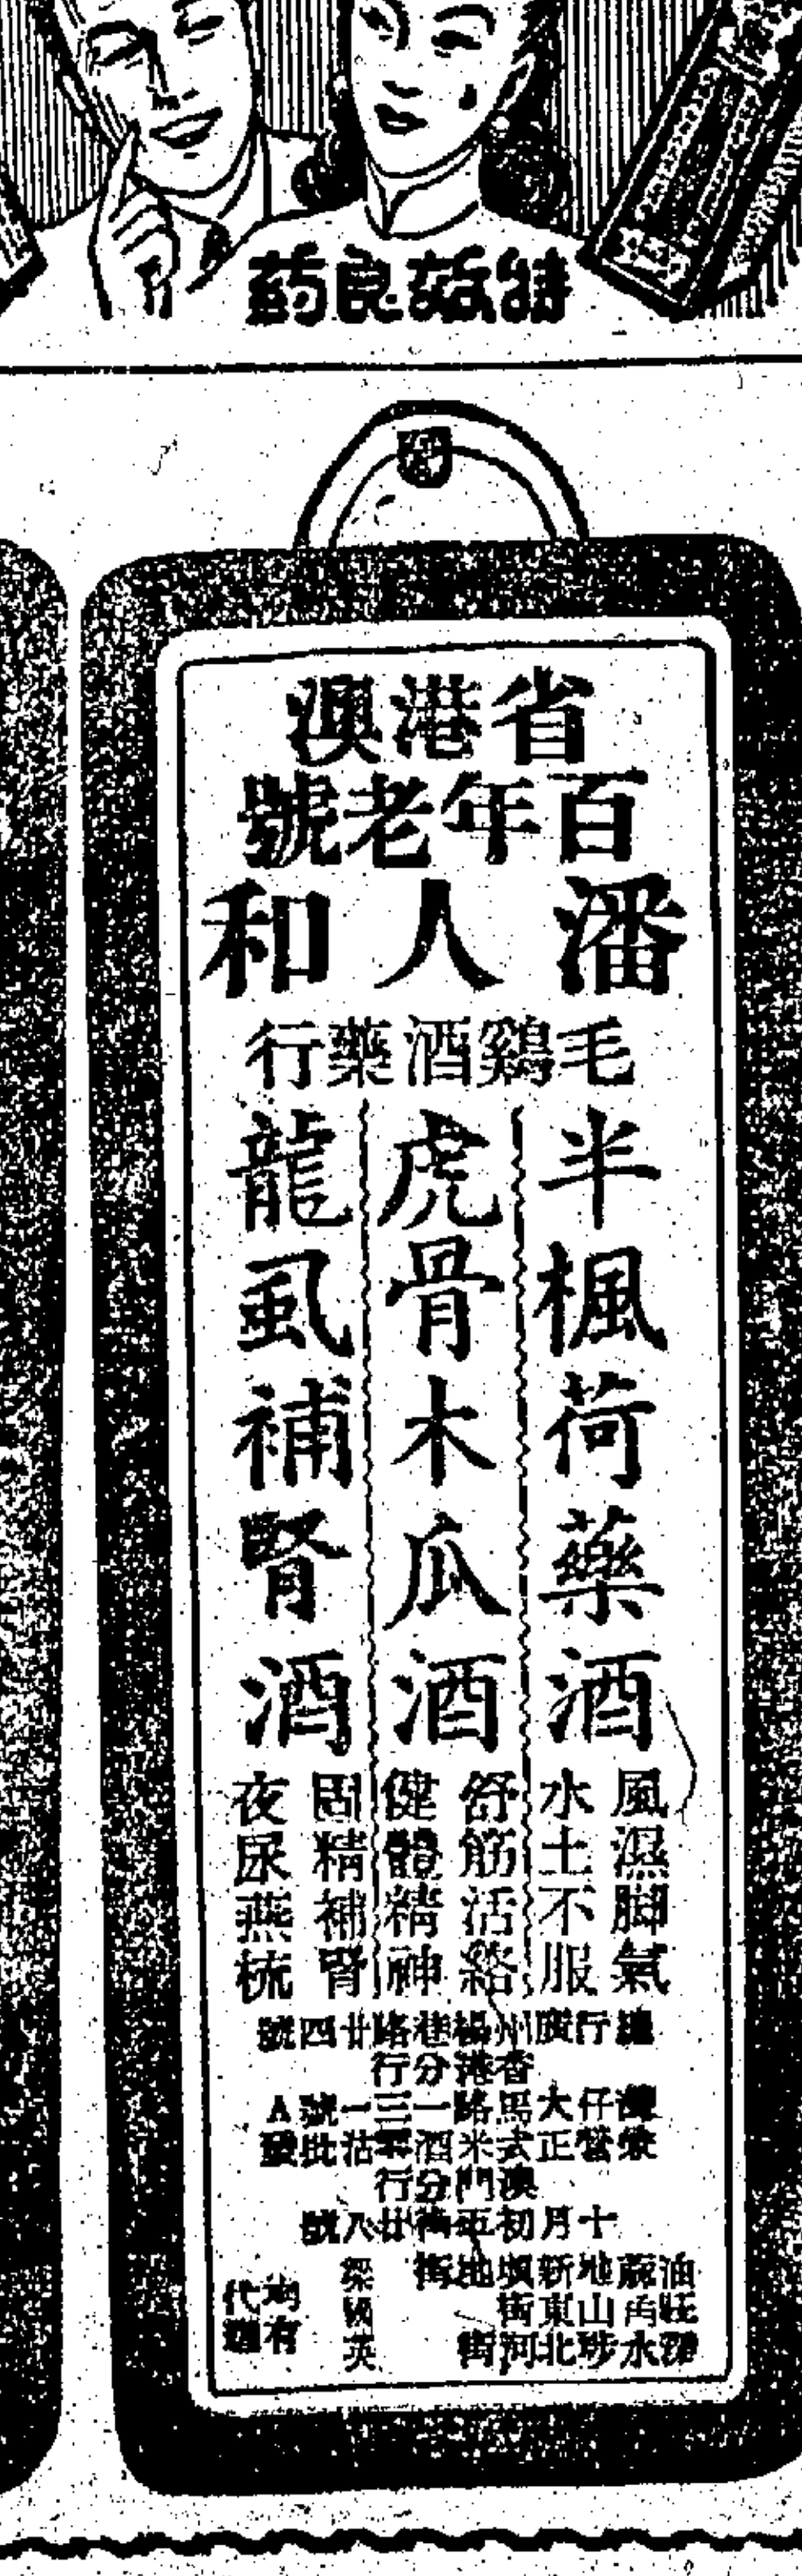 特效良药
省港澳
百年老號
潘人和
毛鷄酒藥行
半楓荷藥酒
風濕脚氣
水土不服
虎骨木瓜酒
舒筋活絡
健體精神
龍虱補腎酒
固精補腎
夜尿燕梳
總行廣州楊巷路廿四號
香港分行
灣仔大馬路一三一號A
正米酒 批沽
澳門分行
十月初五街廿八號
油蔴地新填地街
旺角山東街
深水埗北河街
梁國英
均有代